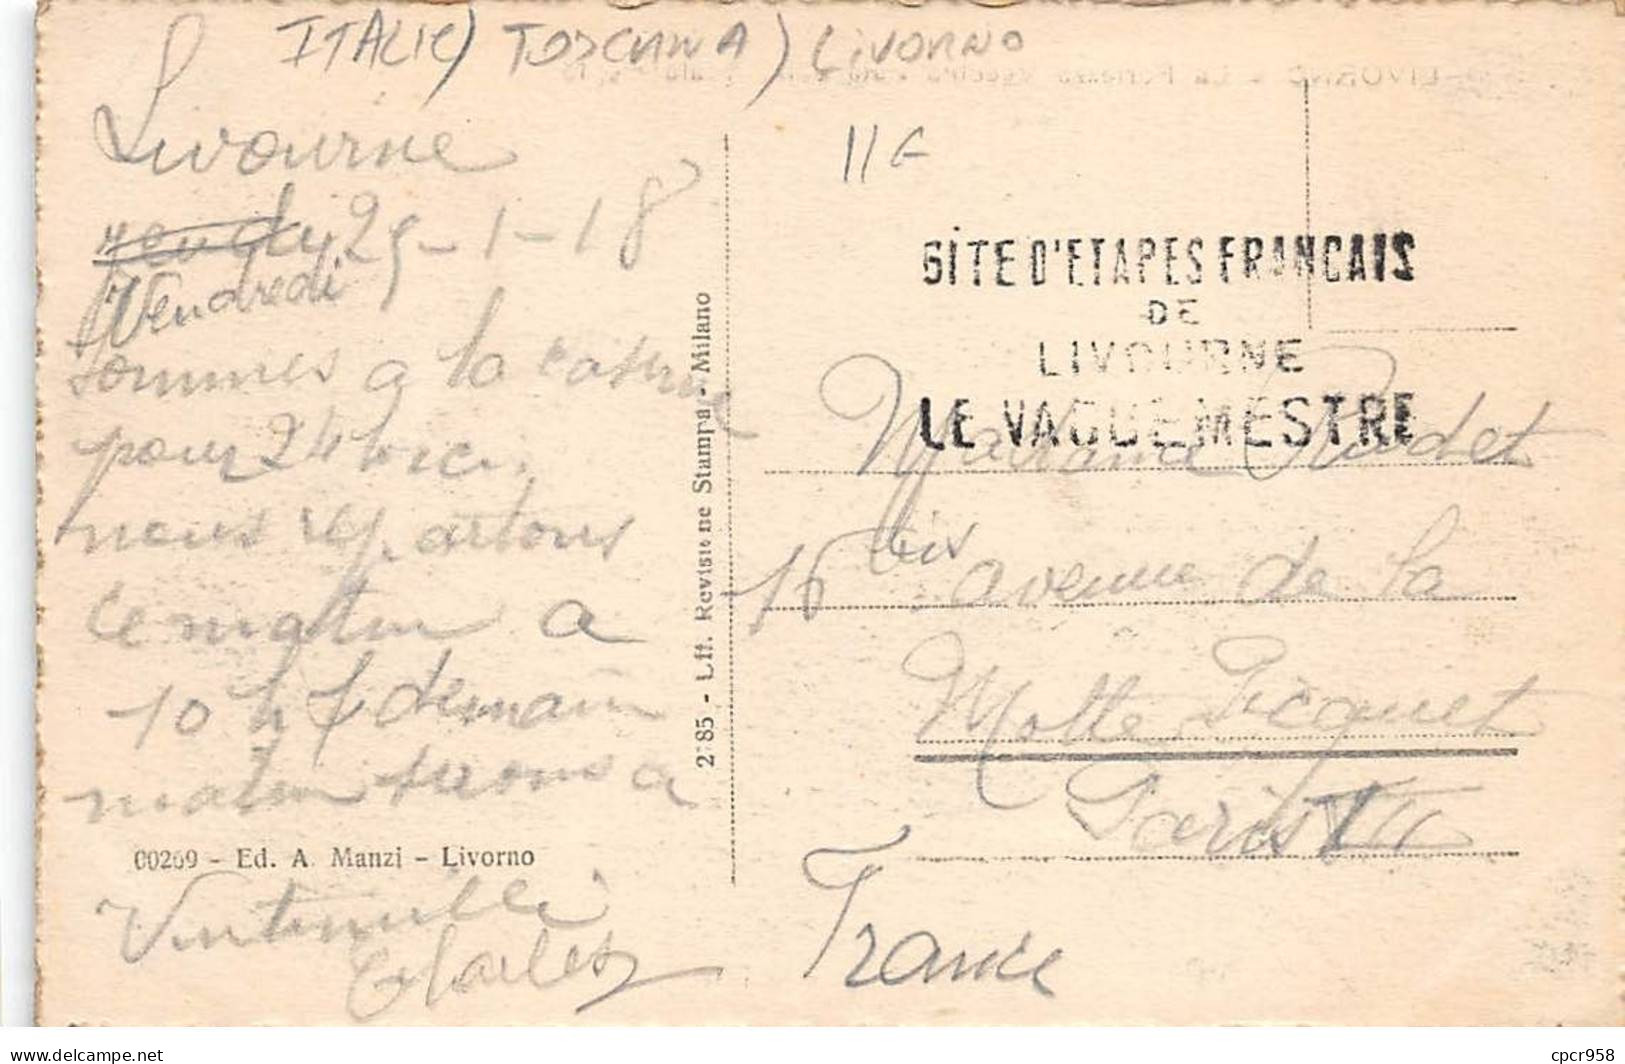 ITALIE) TOSCANA) LIVORNO
11G
Livourne
25-1-18
Vendredi
sommes a la caserne
pour 24 h ici,
nous repartons
ce matin a
10 h demain
matin serons a
Vintimille
Charles
00269 - Ed. A. Manzi - Livorno
2785 - Uff. Revisione Stampa - Milano
GITE D'ETAPES FRANCAIS
DE
LIVOURNE
LE VAGUEMESTRE
Madame Rudet
16 bis avenue de la
Motte Picquet
Paris VII
France
cpcr958